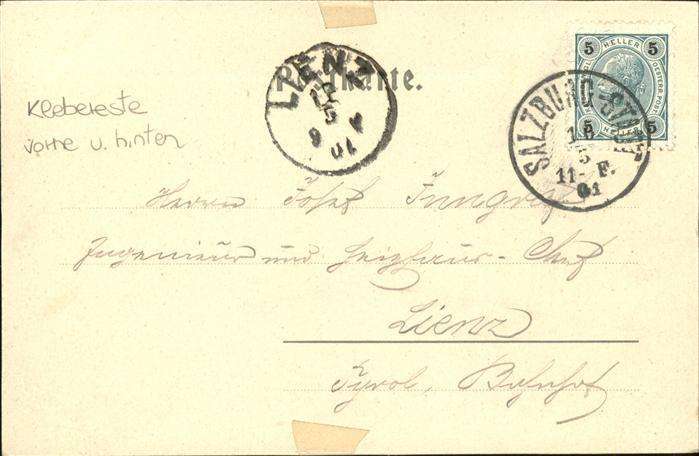 Postkarte.
LIENZ
5
01
5 HELLER 5
5 HELLER 5
SALZBURG-STADT
5
11- F.
01
Klebereste
vorne u. hinten
Herrn Josef
Ingenieur und Heizhaus-Chef
Lienz
Tyrol, Bahnhof